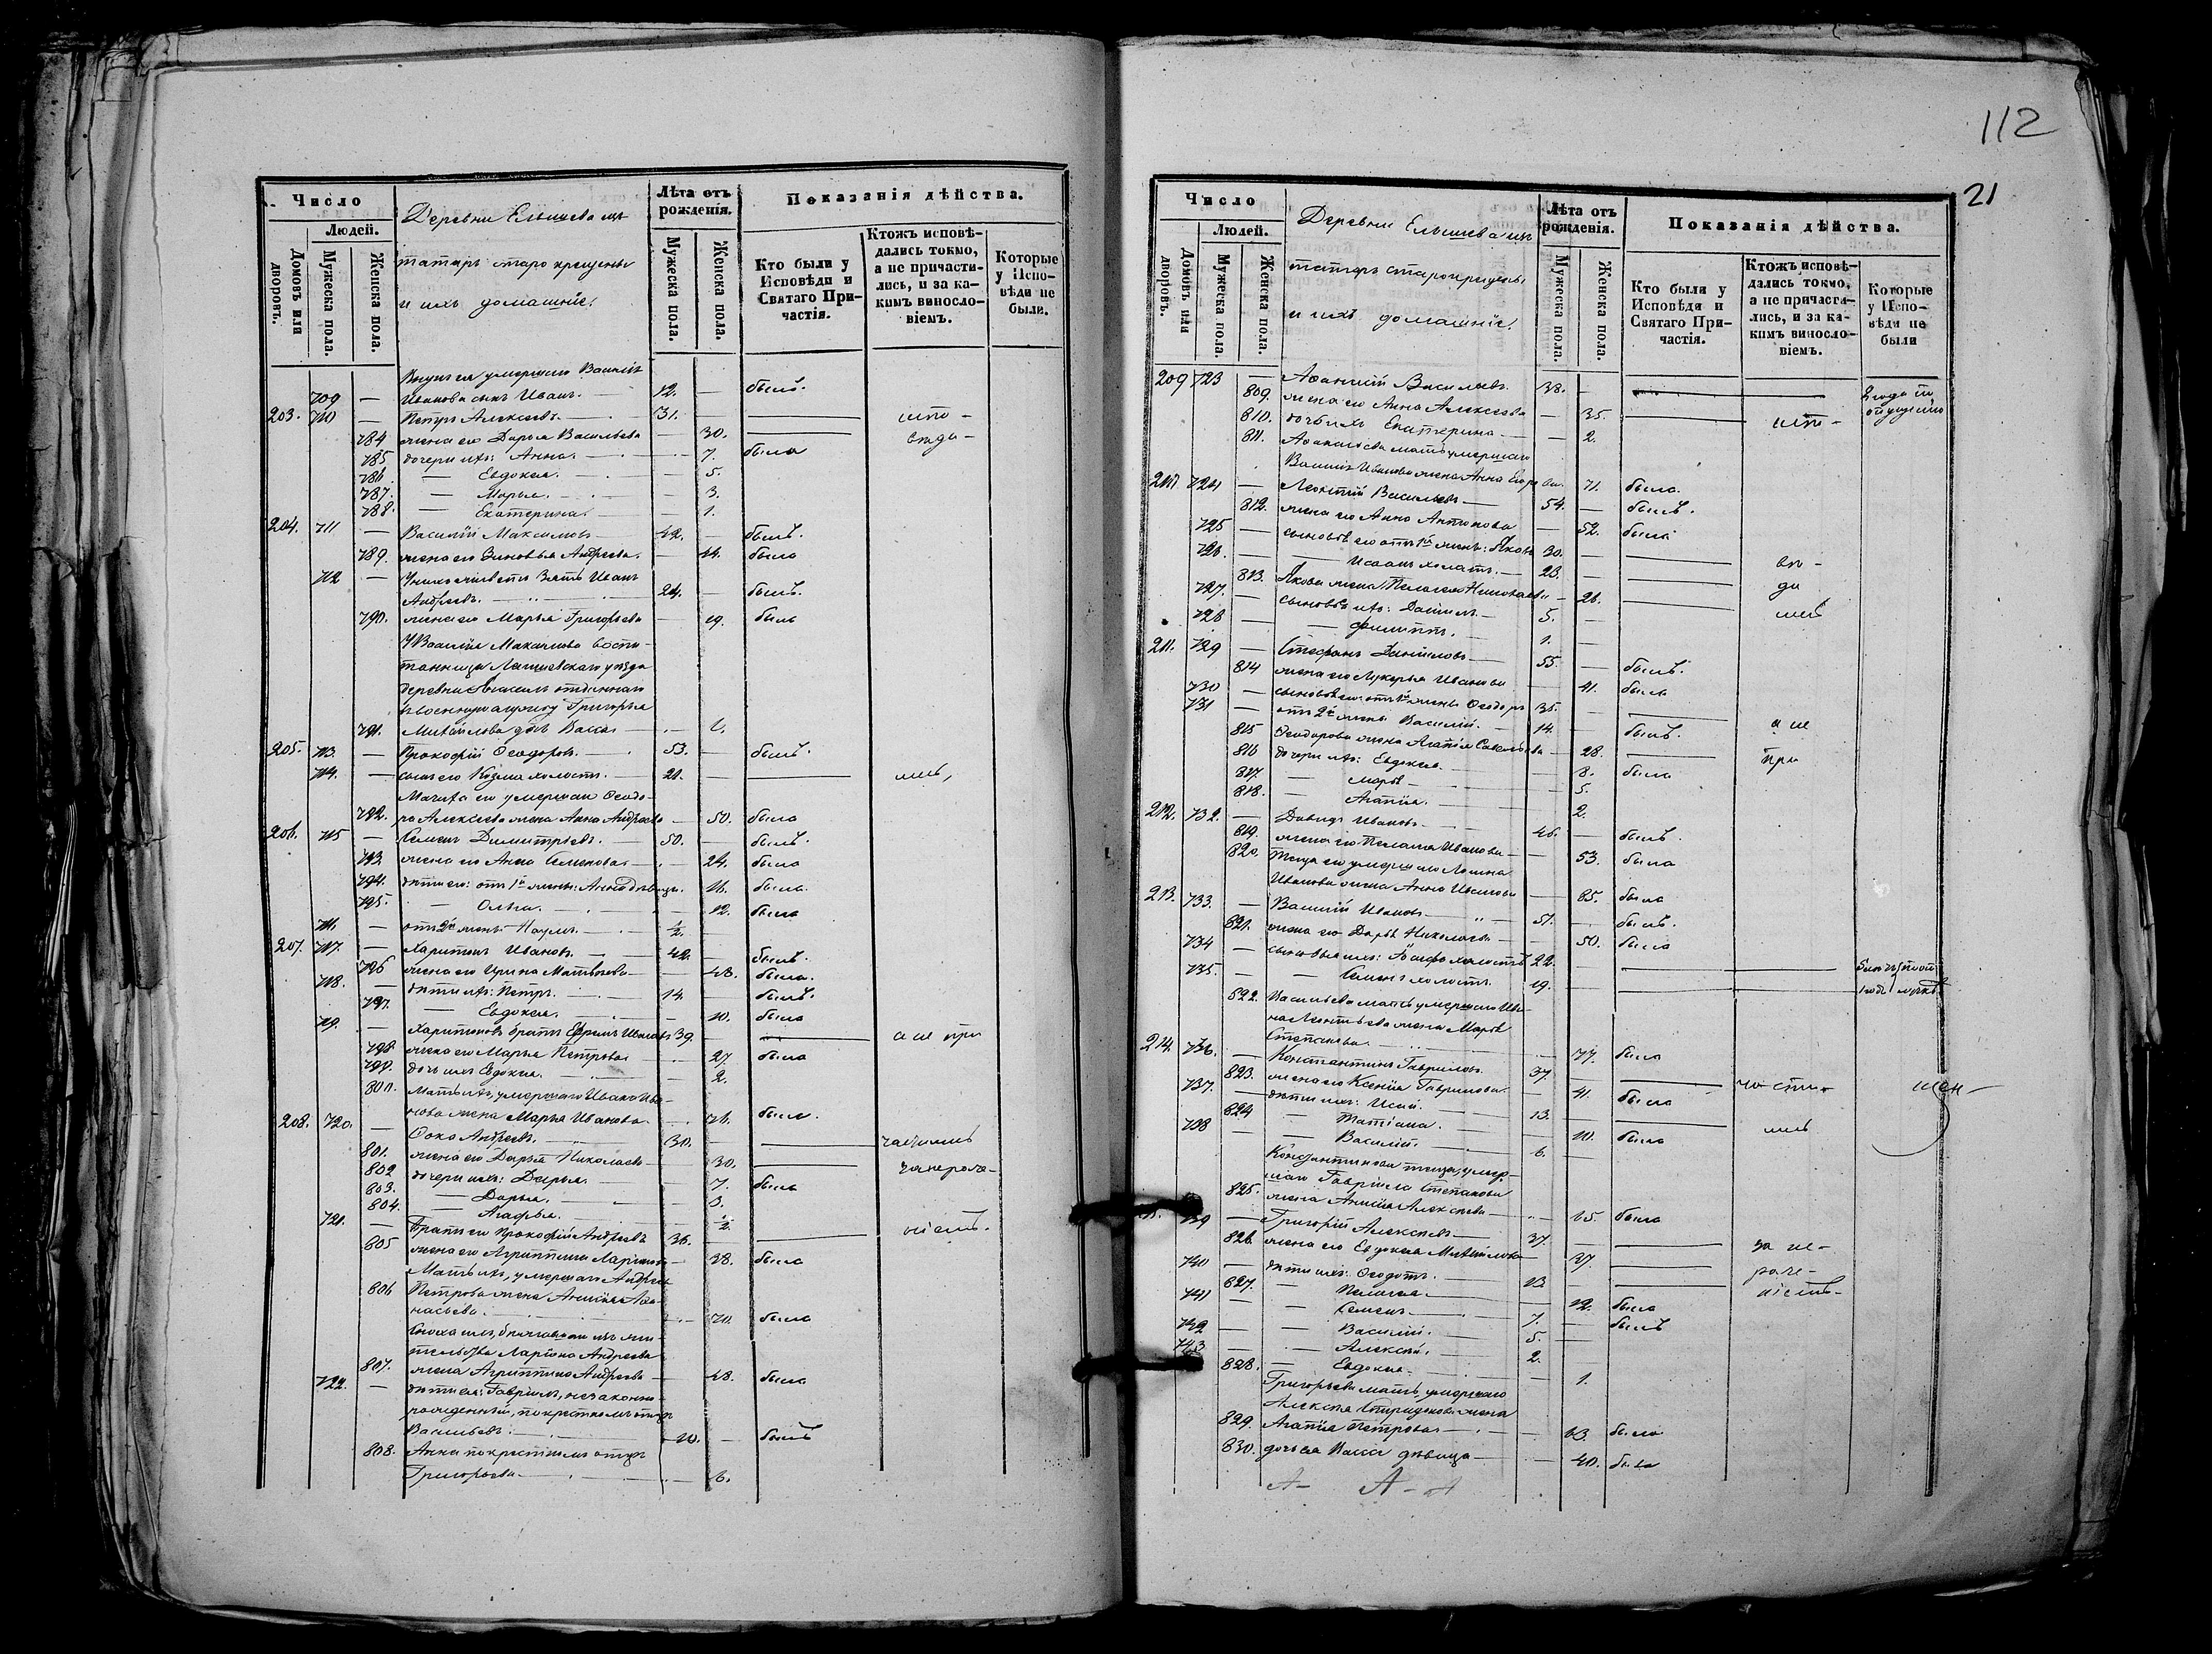 Число
Людей.
Домовъ или дворовъ.
Мужеска пола.
Женска пола.
Деревни Елышева изъ
татаръ старокрещены
и ихъ домашніе.
Лѣта отъ рожденія.
Мужеска пола.
Женска пола.
Показанія дѣйства.
Кто были у Исповѣди и Святаго Причастія.
Ктожъ исповѣдались токмо, а не причастились, и за какимъ винословіемъ.
Которые у Исповѣди не были.
Внукъ ея умершаго Василія
709 — Иванова сынъ Иванъ. 12. — былъ.
203. 710 — Петръ Алексеевъ. 31.
784 жена его Дарья Васильева — 30.
785 дочери ихъ: Анна. — 7. была
786 — Евдокія. — 5.
787. — Марья. — 3.
788. — Екатерина. — 1.
204. 711 — Василій Максимовъ 42. — былъ.
789. жена его Зиновья Андреева. — 44. была
712 — зять Иванъ
Андреевъ. 24. — былъ.
790. жена его Марья Григорьева — 19. была
У Василія воспи-
танница Лаишевскаго уѣзда
деревни отданнаго
въ военную службу Григорья
791. Михайлова дочь Васса — 6.
205. 713. — Прокофій Ѳеодоровъ. 53. — былъ.
714. — сынъ его Козма холостъ. 21. —
Мачиха его умершаго Ѳеодо-
792. ра Алексеева жена Анна Андреева — 50. была
206. 715 — Семенъ Димитріевъ. 50. — былъ.
793 жена его Анна Семенова — 24. была
794. дѣти его: отъ 1й жены: Анна дѣвица. 16. была.
795. — Ольга. — 12. была
716. — отъ 2й жены Наумъ. ½.
207. 717. — Харитонъ Ивановъ. 42. — былъ.
796 жена его Ирина Матвѣева — 43. была.
718. — дѣти ихъ: Петръ. 14. — былъ.
797. — Евдокія. — 10. была
719. — Харитоновъ братъ Ефремъ Ивановъ 39. — а не при
798 жена его Марья Петрова — 27. была
799. дочь ихъ Евдокія. — 2.
800. Мать ихъ, умершаго Ивана Ива-
нова жена Марья Иванова. была.
208. 720. — Ѳока Андреевъ. 30. —
801. жена его Дарья Николаева — 30.
802 дочери ихъ: Дарья. — 7. была
803. — Дарья. — 3.
804. — Агафья. — ½
721. — Братъ его Прокофій Андреевъ 36. —
805 жена его Агриппина — 38. была
Мать ихъ, умершаго Андрея
806 Петрова жена Анисья Аѳа-
насьева. — 70. была
Сноха ихъ,
Ларіона Андреева
807. жена Агриппина Андреева — 48. была
722. — дѣти ея: Гавріилъ, незаконно-
рожденный, по крестномъ отцѣ
Васильевъ. 10. — былъ
808. Анна по крестномъ отцѣ
Григорьева. — 6.
112
21
Число
Людей.
Домовъ или дворовъ.
Мужеска пола.
Женска пола.
Деревни Елышева изъ
татаръ старокрещены
и ихъ домашніе.
Лѣта отъ рожденія.
Мужеска пола.
Женска пола.
Показанія дѣйства.
Кто были у Исповѣди и Святаго Причастія.
Ктожъ исповѣдались токмо, а не причастились, и за какимъ винословіемъ.
Которые у Исповѣди не были
209 723 — Аѳанасій Васильевъ. 38. —
809. жена его Анна Алексеева — 35.
810. дочь ихъ Екатерина — 2.
811. Аѳанасьева мать умершаго
Василія Иванова жена Анна 71. была.
210. 724 — Леонтій Васильевъ 54. — былъ.
812. жена его Анна Антонова — 52. была
725 — сыновья его отъ 1й жены: Яковъ 30. —
726. — холостъ. 23. —
813. Якова жена Пелагея Николаева — 26.
727. — сыновья ихъ: Даніилъ. 5. —
728 — Филиппъ. 1. —
211. 729 — Стефанъ Даниловъ 55. — былъ.
814 жена его Лукерья Иванова — 41. была
730 — сыновья его отъ 1й жены Ѳеодоръ 35. —
731 — отъ 2й жены Василій. 14. — былъ. а не
815 Ѳеодорова жена Агапія — 28. при
816 дочери ихъ: Евдокія. — 8. была
817. — Марѳа — 5.
818. — Агапія. — 2.
212. 732. — Давидъ Ивановъ 46. — былъ.
819. жена его Пелагея Иванова — 53. была
820. Теща его умершаго
Иванова жена Анна Иванова — 85. была
213. 733. — Василій Ивановъ 51. — былъ.
821. жена его Дарья Николаева — 50. была
734 — сыновья ихъ: Іосифъ холостъ 22. —
735. — Семенъ холостъ. 19. —
822. Васильева мать умершаго Ива-
на Леонтьева жена Марѳа
Степанова. 77. была
214. 736. — Константинъ Гавриловъ. 37. —
823. жена его Ксенія Гаврилова — 41. была
737. — дѣти ихъ: Исай. 13. —
824 — Татіана. — 10. была
738 — Василій. 6. —
Константинова теща, умер-
шаго Гавріила Степанова
825. жена Анисья Алексеева — 65. была
739 — Григорій Алексеевъ 37. —
826. жена его Евдокія Михайлова — 37.
740 — дѣти ихъ: Ѳеодотъ. 13 —
827. — Пелагея — 12. была
741 — Семенъ 7. — былъ
742 — Василій. 5. —
743 — Алексей. 2. —
828. — Евдокія. — 1.
Григорьева мать, умершаго
Алексея Спиридонова жена
829. Агапія Петрова — 63. была
830. дочь ея Васса дѣвица — 40. была